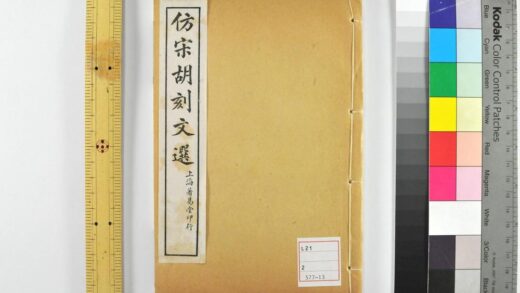 仿宋胡刻文選
上海著易堂印行
121
2
577-13
Kodak
Color Control Patches
Blue
Cyan
Green
Yellow
Red
Magenta
White
3/Color